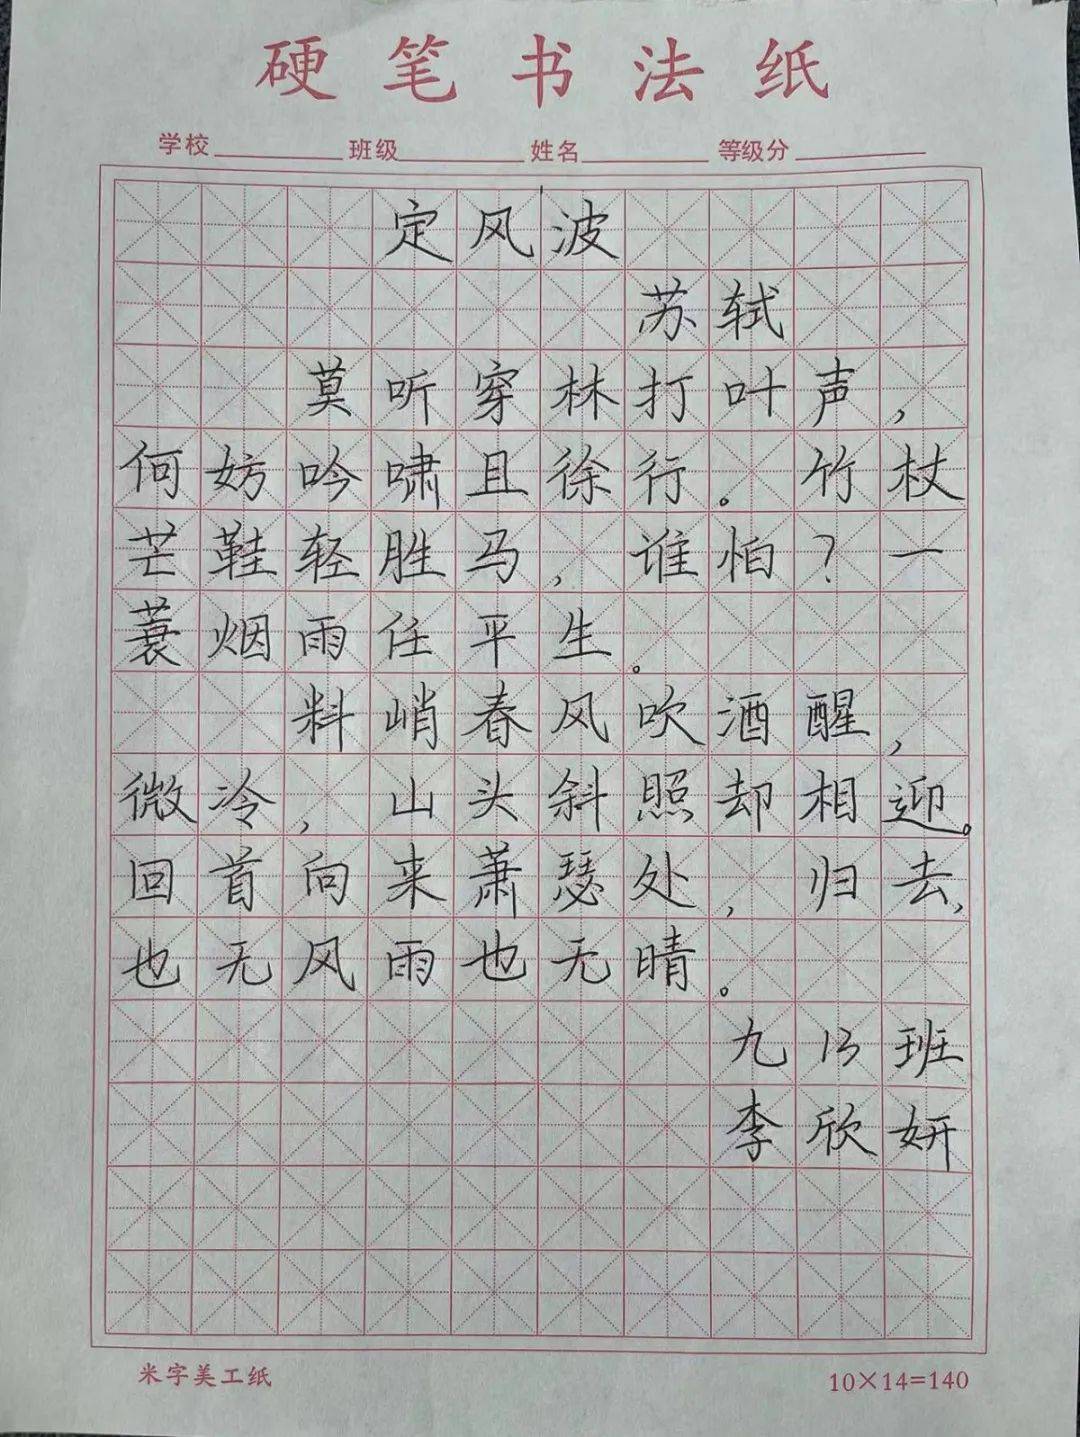 硬笔书法纸
学校 班级 姓名 等级分
定风波
苏轼
莫听穿林打叶声，
何妨吟啸且徐行。竹杖
芒鞋轻胜马，谁怕？一
蓑烟雨任平生。
料峭春风吹酒醒，
微冷，山头斜照却相迎。
回首向来萧瑟处，归去，
也无风雨也无晴。
九13班
李欣妍
米字美工纸 10×14=140